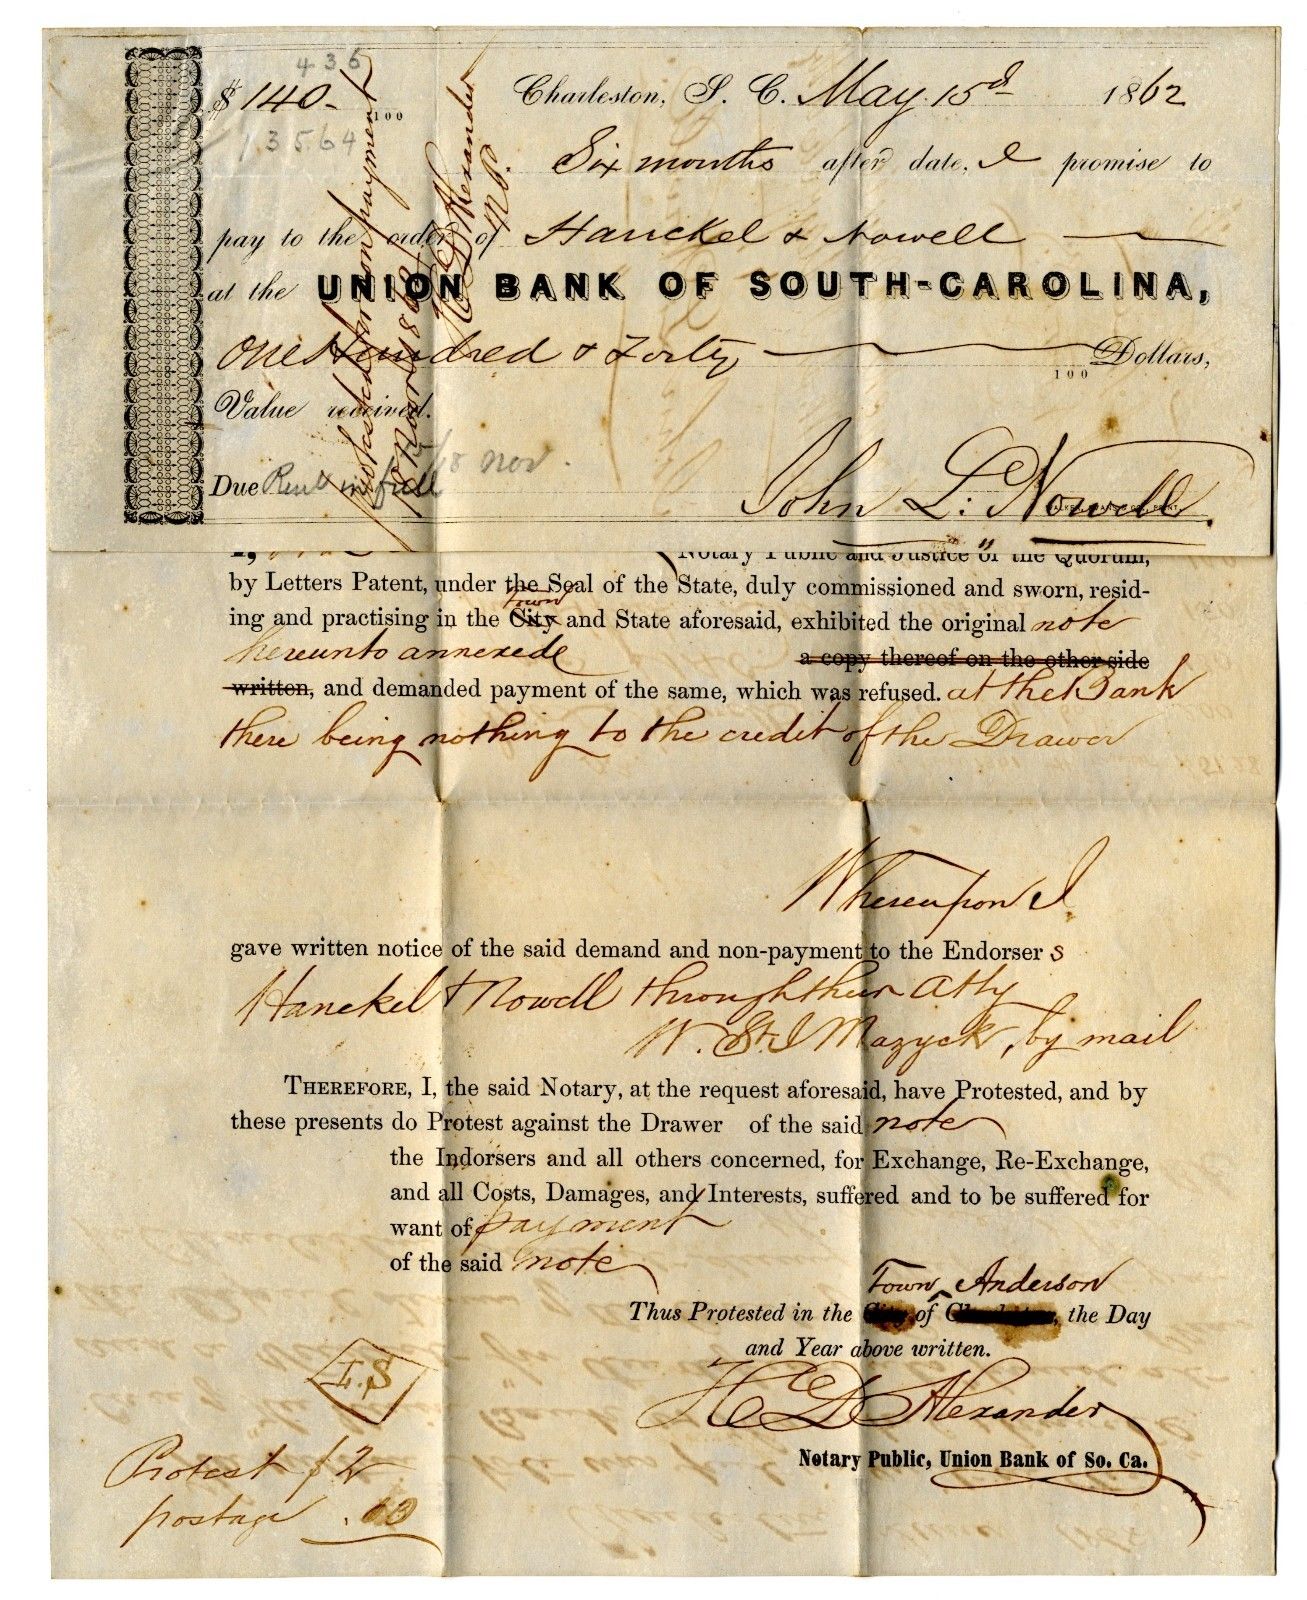 436
$ 140- 100 Charleston, S. C. May 15d 1862
13564
Six months after date, I promise to
pay to the order of Hanckel & Nowell
at the UNION BANK OF SOUTH-CAROLINA,
One Hundred & Forty 100 Dollars,
Value received.
Due 15/18 nov.
in full
John L: Nowell
protested for non payment
18 Novr 1862
H C D Alexander
N.P.
Notary Public and Justice of the Quorum,
by Letters Patent, under the Seal of the State, duly commissioned and sworn, resid-
Town
ing and practising in the City and State aforesaid, exhibited the original note
hereunto annexede a copy thereof on the other side
written, and demanded payment of the same, which was refused. at the Bank
there being nothing to the credit of the Drawer
Whereupon I
gave written notice of the said demand and non-payment to the Endorser s
Hanckel & Nowell through their Atty
W. St. J Mazyck, by mail
THEREFORE, I, the said Notary, at the request aforesaid, have Protested, and by
these presents do Protest against the Drawer of the said note
the Indorsers and all others concerned, for Exchange, Re-Exchange,
and all Costs, Damages, and Interests, suffered and to be suffered for
want of payment
of the said note
Town Anderson
Thus Protested in the City of Charleston, the Day
and Year above written.
L.S
H C D Alexander
Notary Public, Union Bank of So. Ca.
Protest $2
postage .10